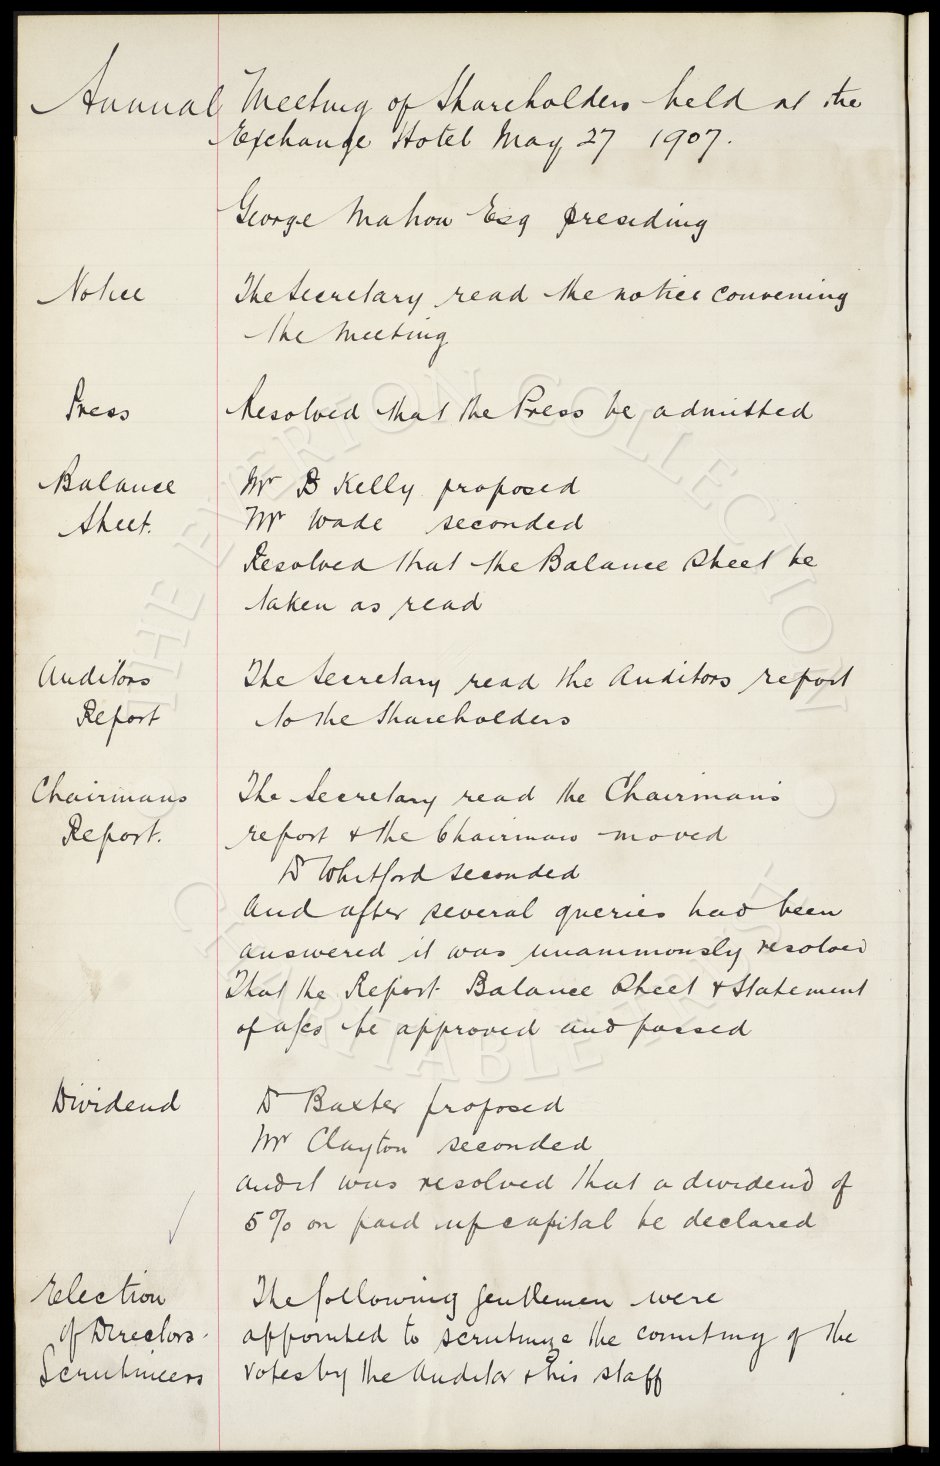 Annual Meeting of Shareholders held at the
Exchange Hotel May 27 1907.
George Mahon Esq presiding
Notice The Secretary read the notice convening
the meeting
Press Resolved that the Press be admitted
Balance Mr B Kelly proposed
Sheet. Mr Wade seconded
Resolved that the Balance Sheet be
taken as read
Auditors The Secretary read the Auditors report
Report to the Shareholders
Chairmans The Secretary read the Chairman's
Report. report & the Chairman moved
Dr Whitford seconded
And after several queries had been
answered it was unanimously resolved
That the Report Balance Sheet & Statement
of a/cs be approved and passed
Dividend Dr Baxter proposed
Mr Clayton seconded
and it was resolved that a dividend of
5% on paid up capital be declared
Election The following gentlemen were
of Directors. appointed to scrutinize the counting of the
Scrutineers votes by the Auditor & his staff
THE EVERTON COLLECTION
CHARITABLE TRUST